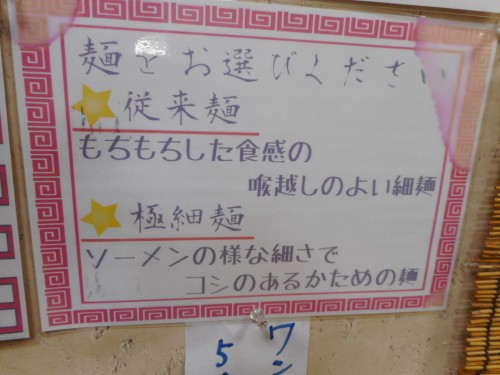 麺をお選びください
従来麺
もちもちした食感の
喉越しのよい細麺
極細麺
ソーメンの様な細さで
コシのあるかための麺